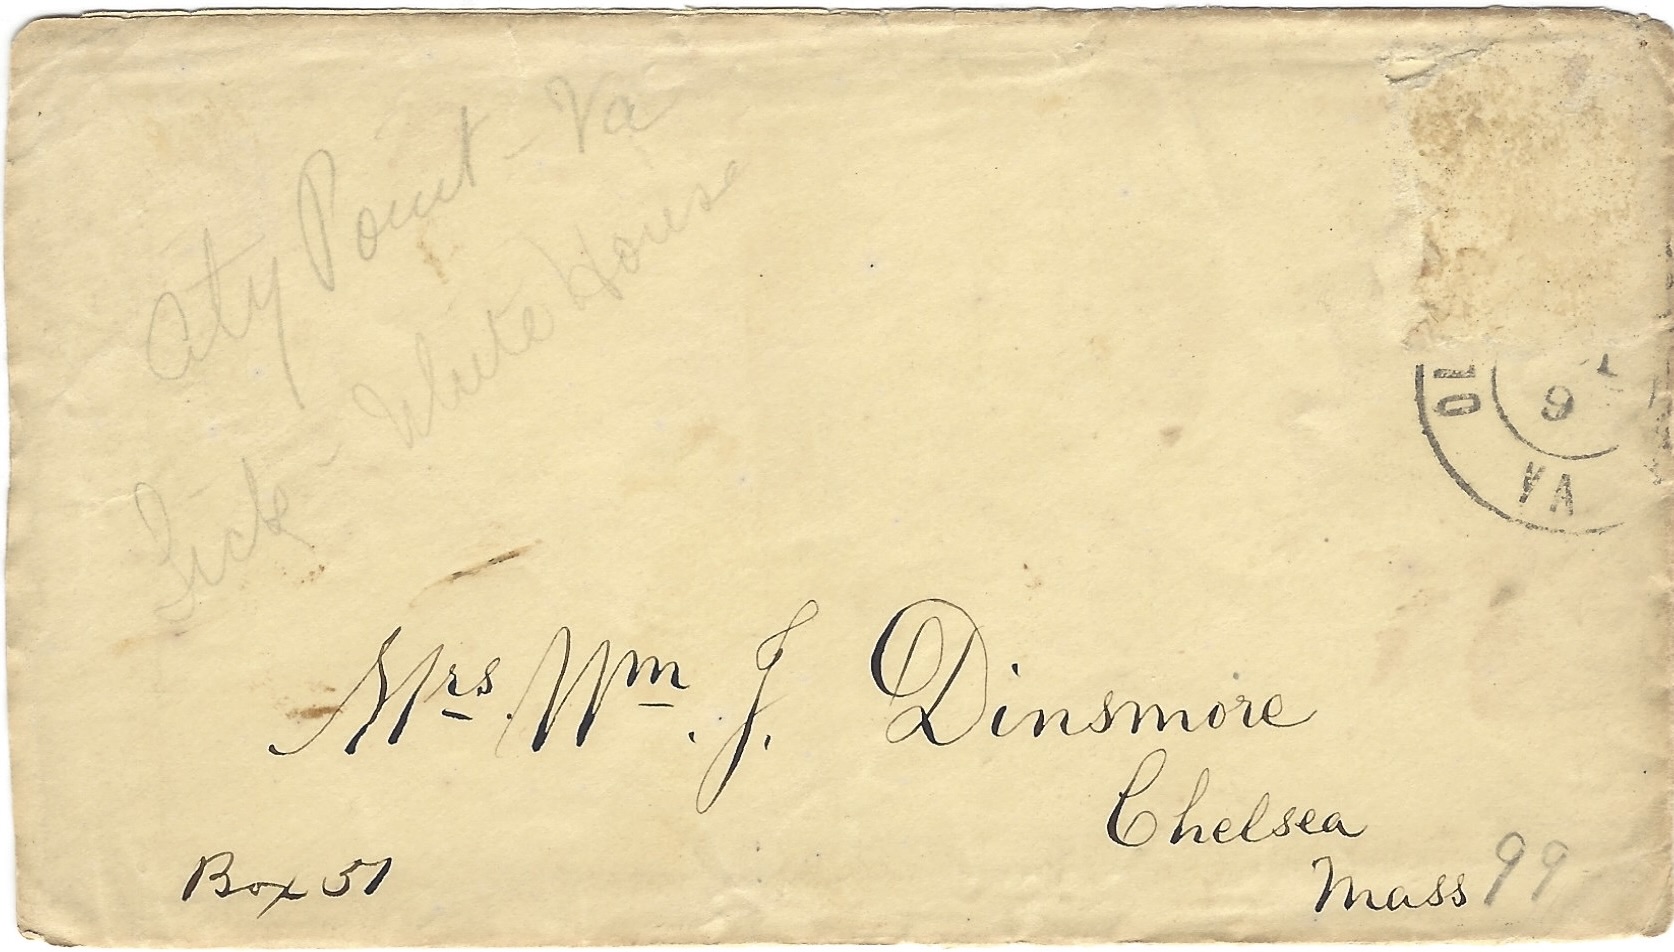 City Point - Va
Tick - White House
OL
9
VA
Mrs. Wm. J. Dinsmore
Chelsea
Mass 99
Box 51